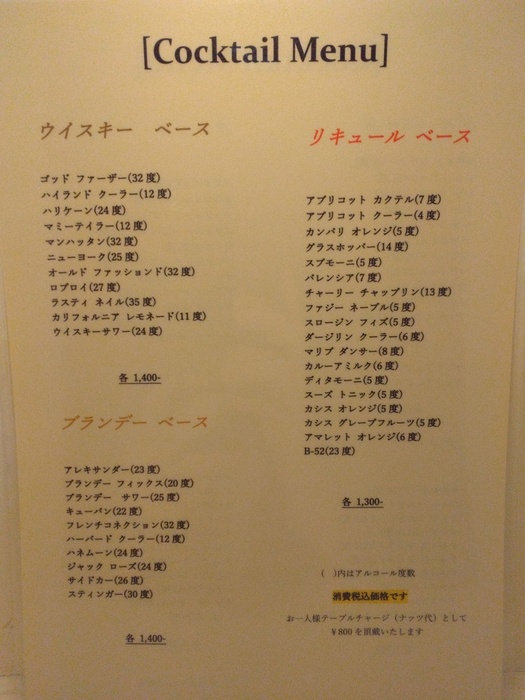 [Cocktail Menu]
ウイスキー ベース
ゴッド ファーザー(32 度)
ハイランド クーラー(12 度)
ハリケーン(24 度)
マミーテイラー(12 度)
マンハッタン(32 度)
ニューヨーク(25 度)
オールド ファッションド(32 度)
ロブロイ(27 度)
ラスティ ネイル(35 度)
カリフォルニア レモネード(11 度)
ウイスキーサワー(24 度)
各 1,400-
ブランデー ベース
アレキサンダー(23 度)
ブランデー フィックス(20 度)
ブランデー サワー(25 度)
キューバン(22 度)
フレンチコネクション(32 度)
ハーバード クーラー(12 度)
ハネムーン(24 度)
ジャック ローズ(24 度)
サイドカー(26 度)
スティンガー(30 度)
各 1,400-
リキュール ベース
アプリコット カクテル(7 度)
アプリコット クーラー(4 度)
カンパリ オレンジ(5 度)
グラスホッパー(14 度)
スプモーニ(5 度)
バレンシア(7 度)
チャーリー チャップリン(13 度)
ファジー ネーブル(5 度)
スロージン フィズ(5 度)
ダージリン クーラー(6 度)
マリブ ダンサー(8 度)
カルーアミルク(6 度)
ディタモーニ(5 度)
スーズ トニック(5 度)
カシス オレンジ(5 度)
カシス グレープフルーツ(5 度)
アマレット オレンジ(6 度)
B-52(23 度)
各 1,300-
( )内はアルコール度数
消費税込価格です
お一人様テーブルチャージ（ナッツ代）として
￥800 を頂戴いたします